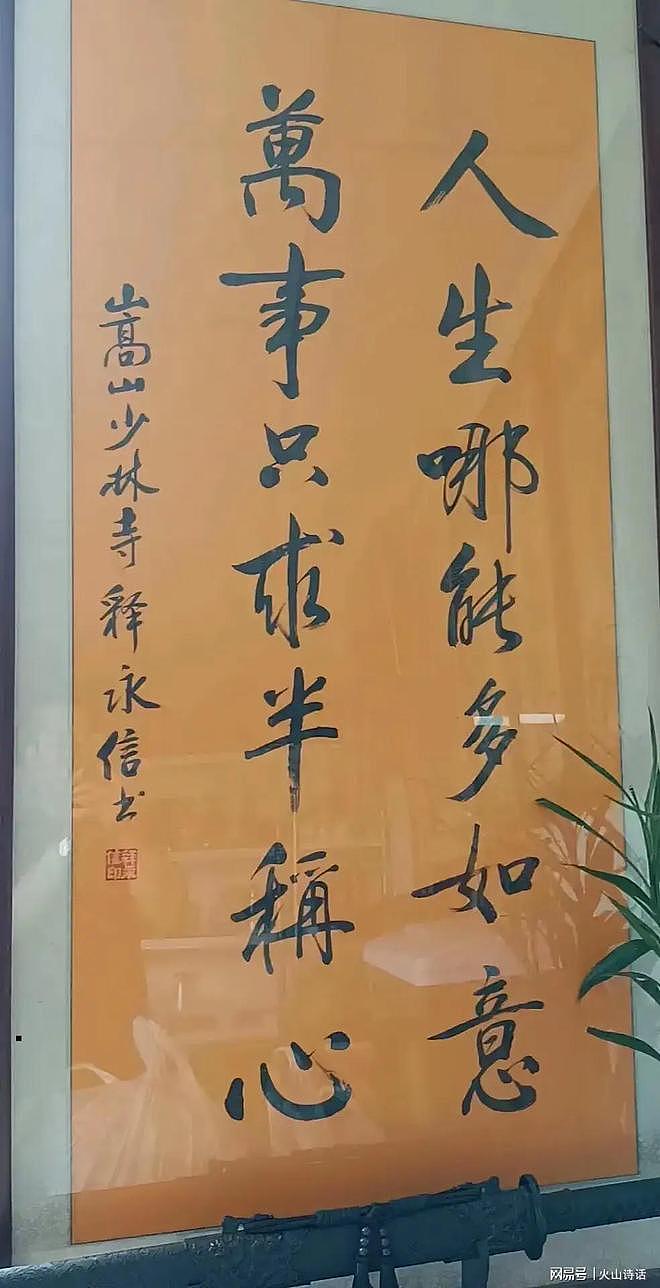 人生哪能多如意
萬事只求半稱心
嵩山少林寺释永信书
网易号|火山诗话